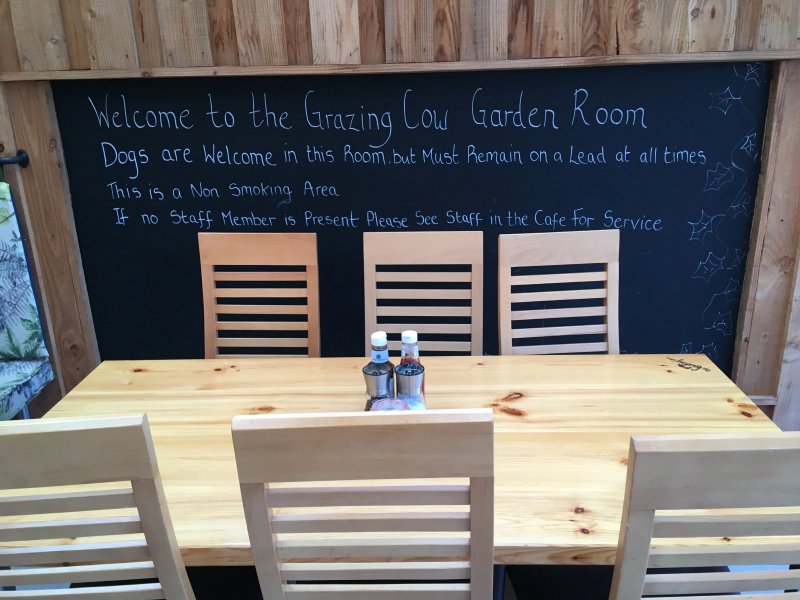 Welcome to the Grazing Cow Garden Room
Dogs are Welcome in this Room, but Must Remain on a Lead at all times
This is a Non Smoking Area
If no Staff Member is Present Please See Staff in the Cafe For Service